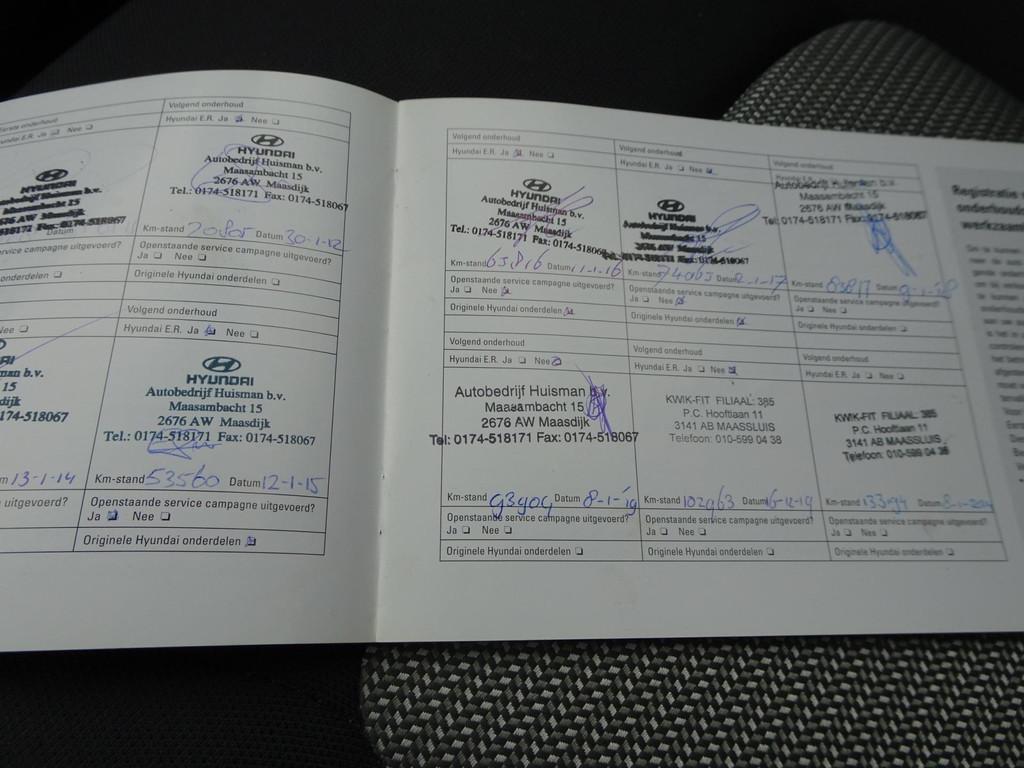 Eerste onderhoud
Hyundai E.R. Ja Nee
HYUNDAI
Maasambacht 15
2676 AW Maasdijk
0174-518171 Fax: 0174-518067
Datum
campagne uitgevoerd?
onderdelen
Volgend onderhoud
Hyundai E.R. Ja Nee
HYUNDAI
Autobedrijf Huisman b.v.
Maasambacht 15
2676 AW Maasdijk
Tel.: 0174-518171 Fax: 0174-518067
Km-stand Datum 30-1-12
Openstaande service campagne uitgevoerd?
Ja Nee
Originele Hyundai onderdelen
Nee
man b.v.
15
0174-518067
13-1-14
uitgevoerd?
Volgend onderhoud
Hyundai E.R. Ja Nee
HYUNDAI
Autobedrijf Huisman b.v.
Maasambacht 15
2676 AW Maasdijk
Tel.: 0174-518171 Fax: 0174-518067
Km-stand 53560 Datum 12-1-15
Openstaande service campagne uitgevoerd?
Ja Nee
Originele Hyundai onderdelen
Volgend onderhoud
Hyundai E.R. Ja Nee
HYUNDAI
Autobedrijf Huisman b.v.
Maasambacht 15
2676 AW Maasdijk
Tel.: 0174-518171 Fax: 0174-518067
Km-stand 63816 Datum 11-1-16
Openstaande service campagne uitgevoerd?
Ja Nee
Originele Hyundai onderdelen
Volgend onderhoud
Hyundai E.R. Ja Nee
HYUNDAI
Km-stand 74963 Datum 2-1-17
Openstaande service campagne uitgevoerd?
Ja Nee
Originele Hyundai onderdelen
Volgend onderhoud
Autobedrijf Huisman b.v.
Maasambacht 15
2676 AW Maasdijk
Tel: 0174-518171 Fax: 0174-518067
Km-stand Datum
Openstaande service campagne uitgevoerd?
Ja Nee
Originele Hyundai onderdelen
Volgend onderhoud
Hyundai E.R. Ja Nee
Autobedrijf Huisman b.v.
Maasambacht 15
2676 AW Maasdijk
Tel: 0174-518171 Fax: 0174-518067
Km-stand 93909 Datum 8-1-'19
Openstaande service campagne uitgevoerd?
Ja Nee
Originele Hyundai onderdelen
Volgend onderhoud
Hyundai E.R. Ja Nee
KWIK-FIT FILIAAL: 385
P.C. Hooftlaan 11
3141 AB MAASSLUIS
Telefoon: 010-599 04 38
Km-stand 102963 Datum 16-12-19
Openstaande service campagne uitgevoerd?
Ja Nee
Originele Hyundai onderdelen
Volgend onderhoud
Hyundai E.R. Ja Nee
KWIK-FIT FILIAAL: 385
P.C. Hooftlaan 11
3141 AB MAASSLUIS
Telefoon: 010-599 04 38
Km-stand Datum
Openstaande service campagne uitgevoerd?
Ja Nee
Originele Hyundai onderdelen
Registratie
onderhouds
werkzaamh